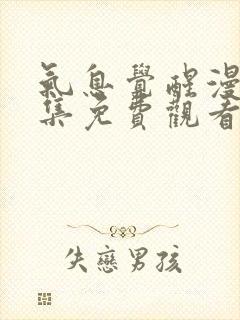 氣息覺醒漫
集免費觀看
失戀男孩